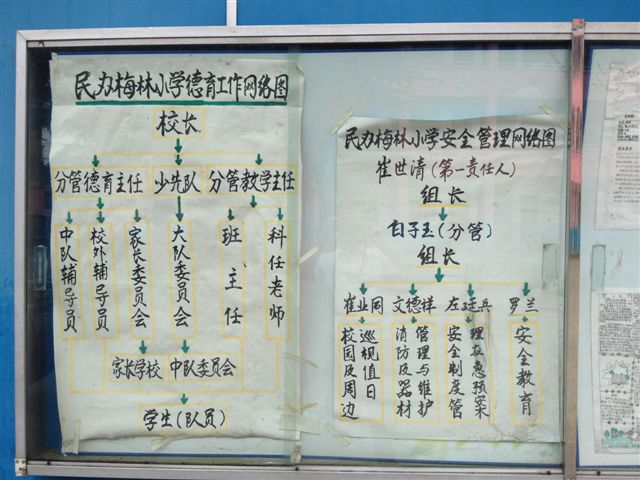 民办梅林小学德育工作网络图
校长
分管德育主任 少先队 分管教学主任
中队辅导员
校外辅导员
家长委员会
大队委员会
班主任
科任老师
家长学校 中队委员会
学生(队员)
民办梅林小学安全管理网络图
崔世清(第一责任人)
组长
白子玉(分管)
组长
崔业同 文德祥 左廷兵 罗兰
校园及周边
巡视值日
消防及器材
管理与维护
安全制度管
理应急预案
安全教育